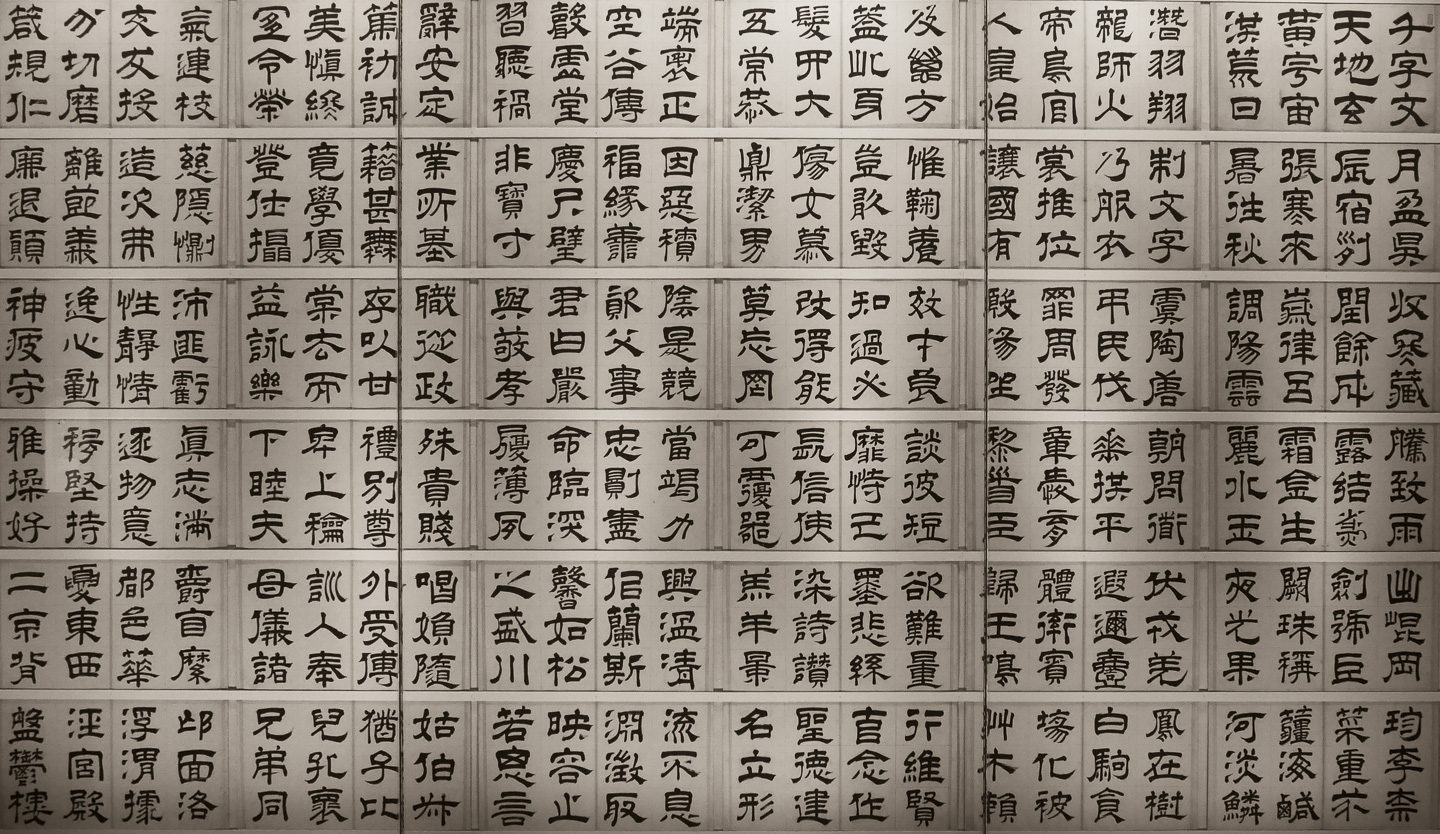 千字文
天地玄
黃宇宙
洪荒日
月盈昃
辰宿列
張寒來
暑往秋
收冬藏
閏餘成
歲律呂
調陽雲
騰致雨
露結為
霜金生
麗水玉
出崐岡
劍號巨
闕珠稱
夜光果
珍李柰
菜重芥
薑海鹹
河淡鱗
潛羽翔
龍師火
帝鳥官
人皇始
制文字
乃服衣
裳推位
讓國有
虞陶唐
弔民伐
罪周發
殷湯坐
朝問道
垂拱平
章愛育
黎首臣
伏戎羌
遐邇壹
體率賓
歸王鳴
鳳在樹
白駒食
場化被
草木賴
及萬方
蓋此身
髮四大
五常恭
惟鞠養
豈敢毀
傷女慕
貞潔男
效才良
知過必
改得能
莫忘罔
談彼短
靡恃己
長信使
可覆器
欲難量
墨悲絲
染詩讚
羔羊景
行維賢
克念作
聖德建
名立形
端表正
空谷傳
聲虛堂
習聽禍
因惡積
福緣善
慶尺璧
非寶寸
陰是競
資父事
君曰嚴
與敬孝
當竭力
忠則盡
命臨深
履薄夙
興溫凊
似蘭斯
馨如松
之盛川
流不息
淵澂取
映容止
若思言
辭安定
篤初誠
美慎終
宜令榮
業所基
籍甚無
竟學優
登仕攝
職從政
存以甘
棠去而
益詠樂
殊貴賤
禮別尊
卑上龢
下睦夫
唱婦隨
外受傅
訓入奉
母儀諸
姑伯叔
猶子比
兒孔懷
兄弟同
氣連枝
交友投
分切磨
箴規仁
慈隱惻
造次弗
離節義
廉退顛
沛匪虧
性靜情
逸心動
神疲守
真志滿
逐物意
移堅持
雅操好
爵自縻
都邑華
夏東西
二京背
邙面洛
浮渭據
涇宮殿
盤鬱樓